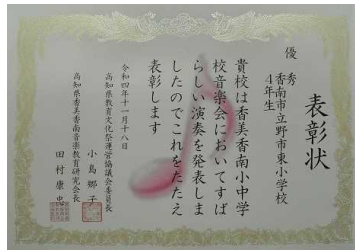 表彰状
優秀
香南市立野市東小学校
4年生
貴校は香美香南小中学
校音楽会においてすば
らしい演奏を発表しま
したのでこれをたたえ
表彰します
令和四年十一月十八日
高知県教育文化祭運営協議会委員長
小島郷子
高知県香美香南音楽教育研究会長
田村康